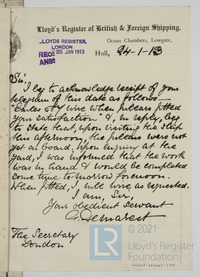 Lloyd's Register of British & Foreign Shipping,
Ocean Chambers, Lowgate,
LLOYD'S REGISTER,
LONDON
REC 25 JAN 1913
ANS
Hull, 24-1-13
Sir,
I beg to acknowledge receipt of your
telegram of this date as follows
"Eagles wire when pieces fitted
your satisfaction" & in reply, beg
to state that upon visiting the ship
this afternoon, the pieces was not
yet on board, upon enquiry at the
yard, I was informed that the work
was in hand & would be completed
some time tomorrow forenoon.
When fitted, I will wire as requested.
I am, Sir,
Your obedient Servant
The Secretary
London
© 2021
Lloyd's Register
Foundation